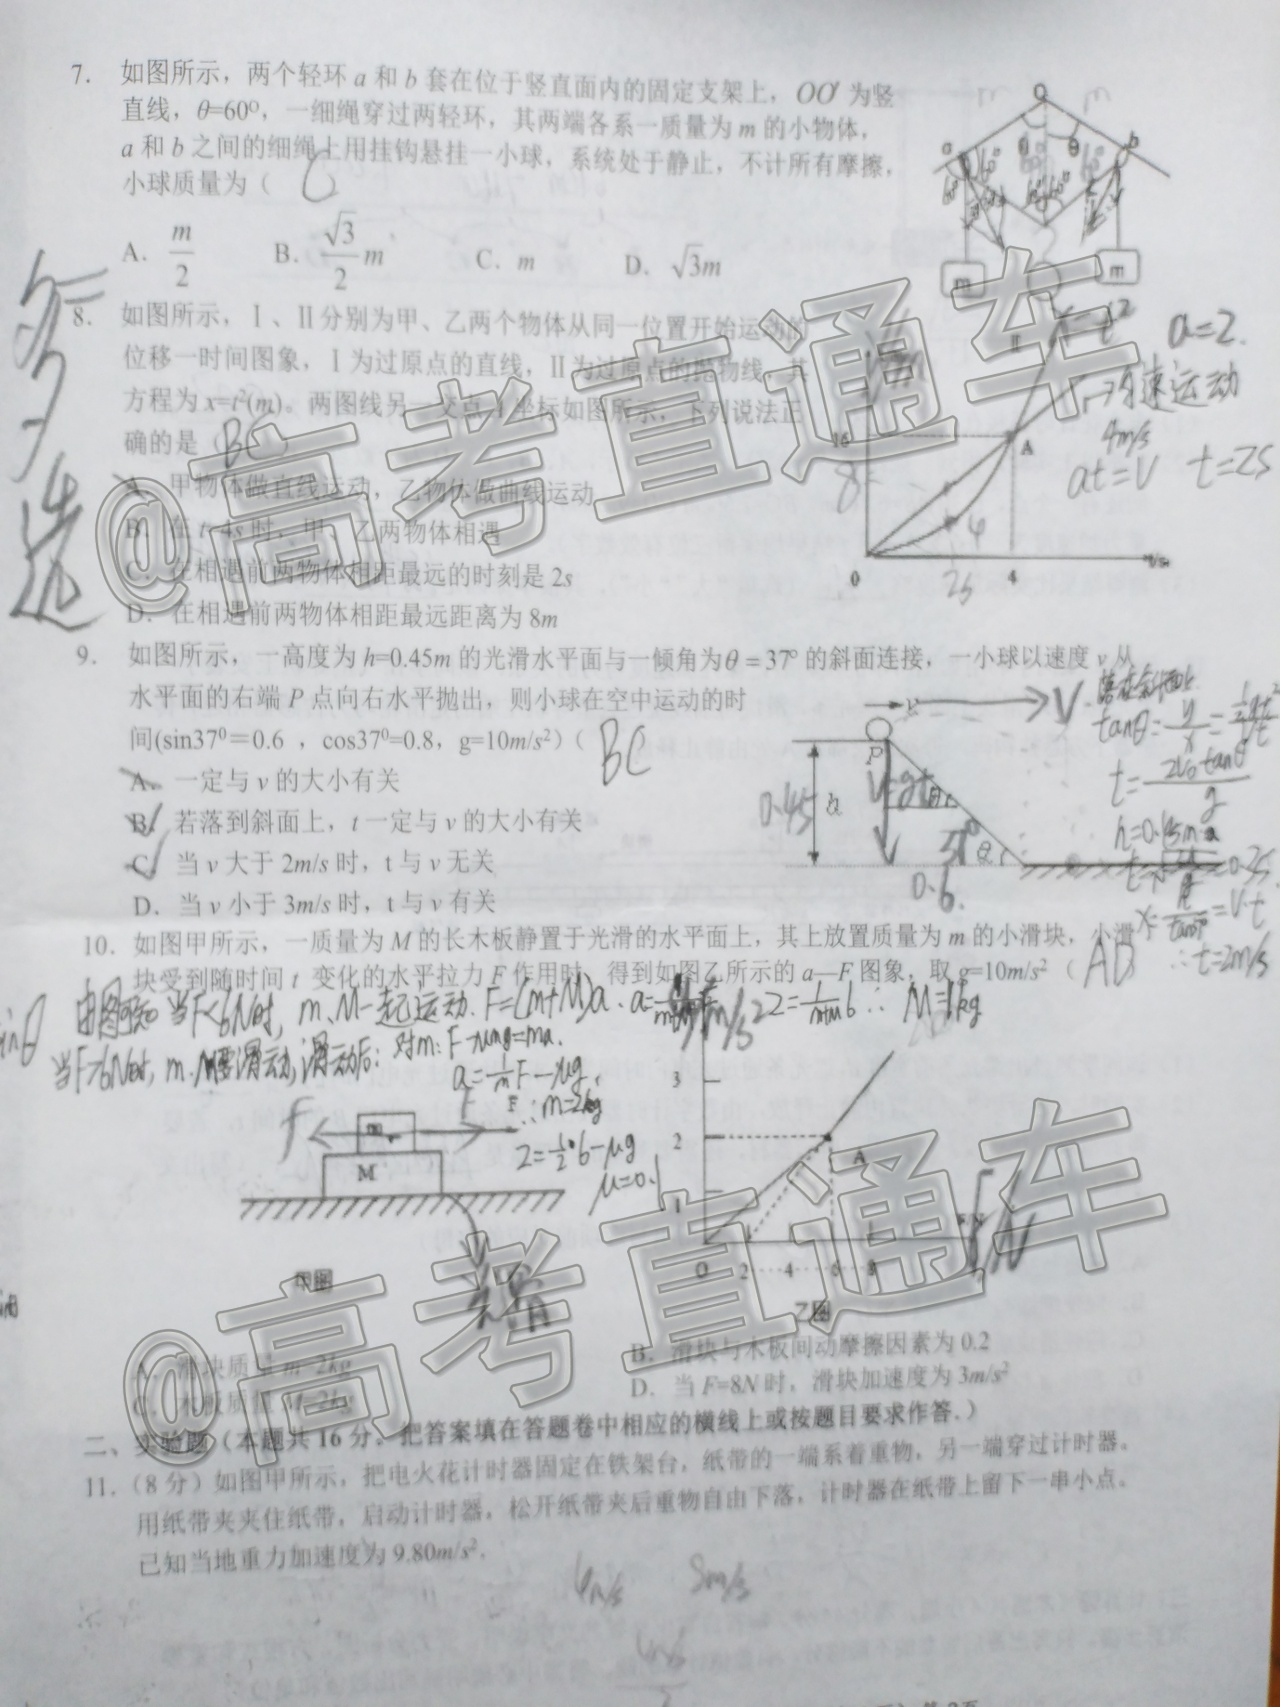 7. 如图所示，两个轻环 a 和 b 套在位于竖直面内的固定支架上，OO′ 为竖
直线，θ=60⁰，一细绳穿过两轻环，其两端各系一质量为 m 的小物体，
a 和 b 之间的细绳上用挂钩悬挂一小球，系统处于静止，不计所有摩擦，
小球质量为（ C
A. m/2 B. √3/2 m C. m D. √3m
O
a θ θ b
60° 60°
m m
多选
8. 如图所示，Ⅰ、Ⅱ分别为甲、乙两个物体从同一位置开始运动的
位移一时间图象，Ⅰ为过原点的直线，Ⅱ为过原点的抛物线，其
方程为 x=t²(m)。两图线另一交点 A 坐标如图所示，下列说法正
确的是（ BC ）
A. 甲物体做直线运动，乙物体做曲线运动
B. 在 t=4s 时，甲、乙两物体相遇
C. 在相遇前两物体相距最远的时刻是 2s
D. 在相遇前两物体相距最远距离为 8m
a=2.
匀速运动
4m/s
at=V t=2s
16 Ⅱ A
8
0 2s 4
9. 如图所示，一高度为 h=0.45m 的光滑水平面与一倾角为θ=37° 的斜面连接，一小球以速度 v 从
水平面的右端 P 点向右水平抛出，则小球在空中运动的时
间(sin37⁰=0.6 ，cos37⁰=0.8，g=10m/s²)（ BC
A. 一定与 v 的大小有关
B. 若落到斜面上，t 一定与 v 的大小有关
C. 当 v 大于 2m/s 时，t 与 v 无关
D. 当 v 小于 3m/s 时，t 与 v 有关
v V
P
0.45 h V=gt
37° θ
0.6.
落在斜面上
tanθ=y/x=
t=2v₀tanθ/g
=V·t
∴t=2m/s
10. 如图甲所示，一质量为 M 的长木板静置于光滑的水平面上，其上放置质量为 m 的小滑块，小滑
块受到随时间 t 变化的水平拉力 F 作用时，得到如图乙所示的 a—F 图象，取 g=10m/s²（ AD
由图可知 当F<6N时，m、M一起运动. F=(m+M)a. 2=1/m+M 6 ∴ M=1kg
当F>6N时，m、M要滑动，滑动后：对m：F-μmg=ma.
a=1/m F-μg
∴m=2kg
2=1/2·6-μg
μ=0.1
f m F
M
甲图
3
2 A
1
0 2 4 6 8
乙图
A. 滑块质量 m=2kg B. 滑块与木板间动摩擦因素为 0.2
C. 木板质量 M=2kg D. 当 F=8N 时，滑块加速度为 3m/s²
二、实验题（本题共 16 分。把答案填在答题卷中相应的横线上或按题目要求作答.）
11.（8 分）如图甲所示，把电火花计时器固定在铁架台，纸带的一端系着重物，另一端穿过计时器。
用纸带夹夹住纸带，启动计时器，松开纸带夹后重物自由下落，计时器在纸带上留下一串小点。
已知当地重力加速度为 9.80m/s².
8m/s
@高考直通车
@高考直通车